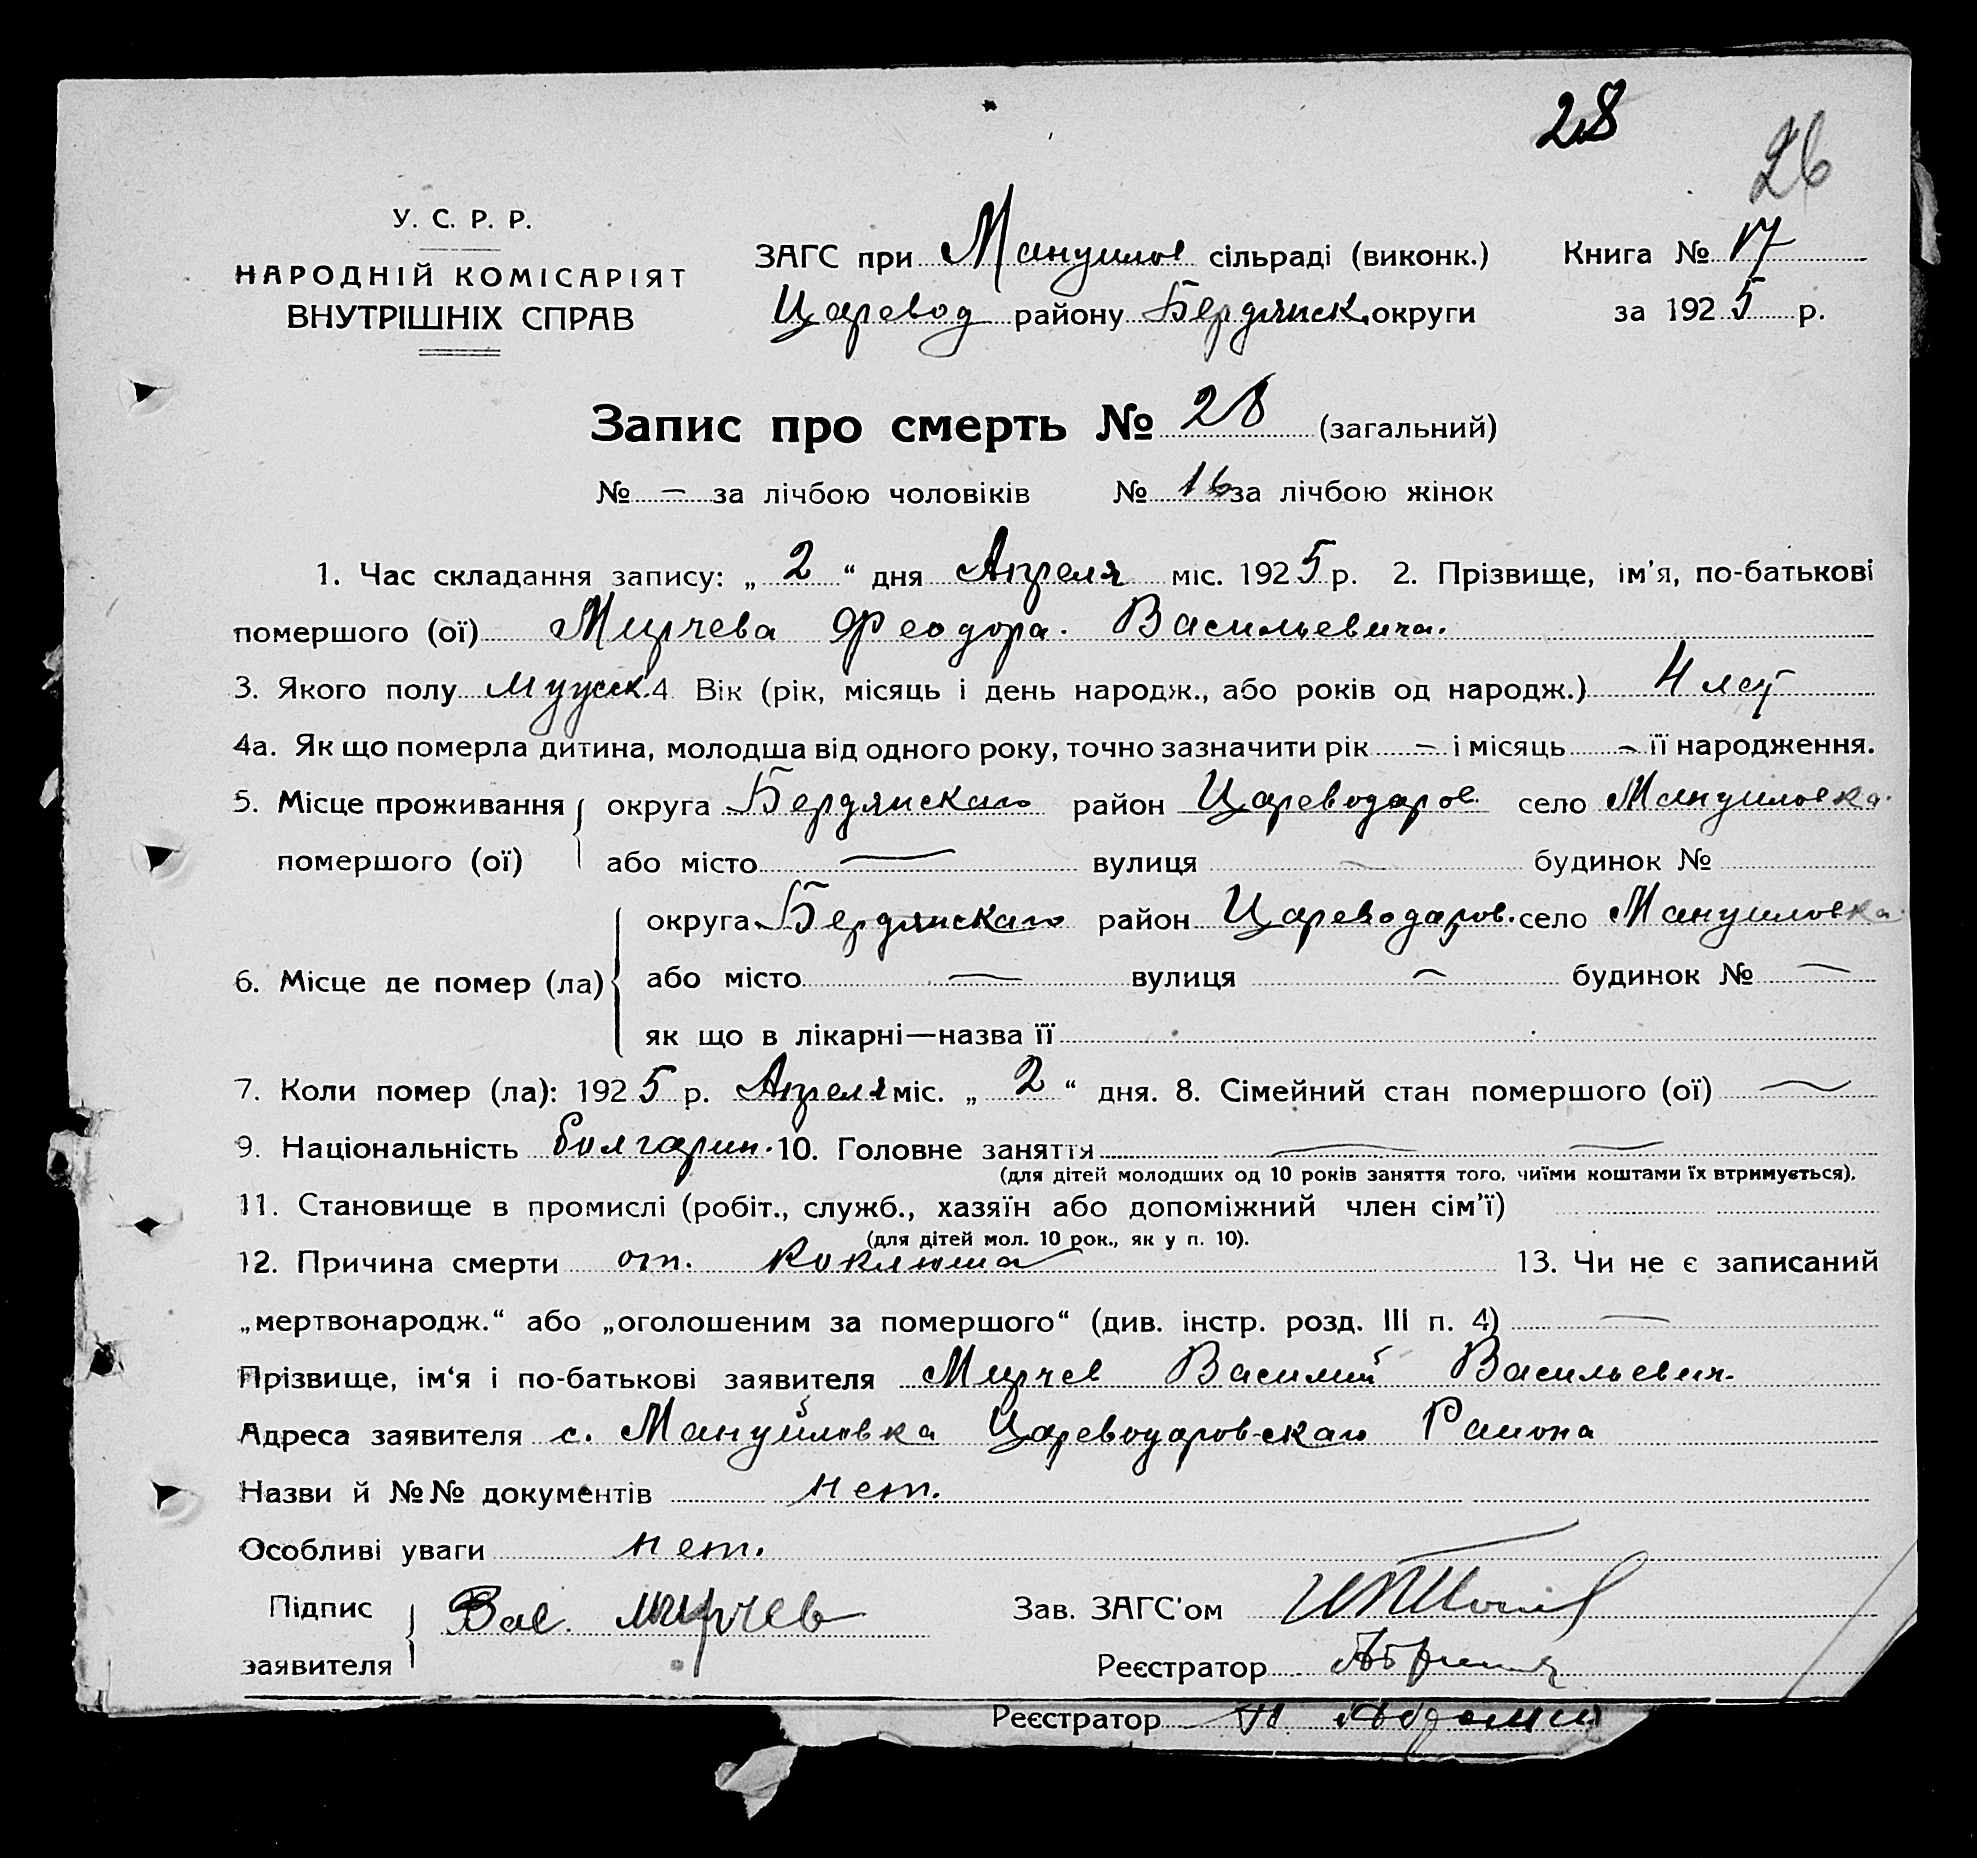 28
26
У. С. Р. Р.
НАРОДНІЙ КОМІСАРІЯТ
ВНУТРІШНІХ СПРАВ
ЗАГС при Мануилов сільраді (виконк.)
Царевод району Бердянск. округи
Книга № 17
за 1925 р.
Запис про смерть № 28 (загальний)
№ — за лічбою чоловіків № 16 за лічбою жінок
1. Час складання запису: „ 2 “ дня Апреля міс. 1925 р. 2. Прізвище, ім'я, по-батькові
помершого (ої) Мирчева Феодора. Васильевича.
3. Якого полу мужск. 4 Вік (рік, місяць і день народж., або років од народж.) 4 лет
4а. Як що померла дитина, молодша від одного року, точно зазначити рік — і місяць — її народження.
5. Місце проживання округа Бердянскаго район Цареводаров. село Мануиловка.
помершого (ої) або місто — вулиця — будинок №
округа Бердянскаго район Цареводаров. село Мануиловка.
6. Місце де помер (ла) або місто — вулиця — будинок № —
як що в лікарні—назва її
7. Коли помер (ла): 1925 р. Апреля міс. „ 2 “ дня. 8. Сімейний стан помершого (ої) —
9. Національність болгарин. 10. Головне заняття — —
(для дітей молодших од 10 років заняття того, чиїми коштами їх втримується).
11. Становище в промислі (робіт., служб., хазяїн або допоміжний член сім'ї)
(для дітей мол. 10 рок., як у п. 10).
12. Причина смерти от. коклюша 13. Чи не є записаний
„мертвонародж.“ або „оголошеним за помершого“ (див. інстр. розд. III п. 4) —
Прізвище, ім'я і по-батькові заявителя Мирчев Василий Васильевич.
Адреса заявителя с. Мануйловка Цареводаровскаго Района
Назви й №№ документів нет.
Особливі уваги нет.
Підпис заявителя Вас. Мирчев
Зав. ЗАГС'ом
Реєстратор
Реєстратор